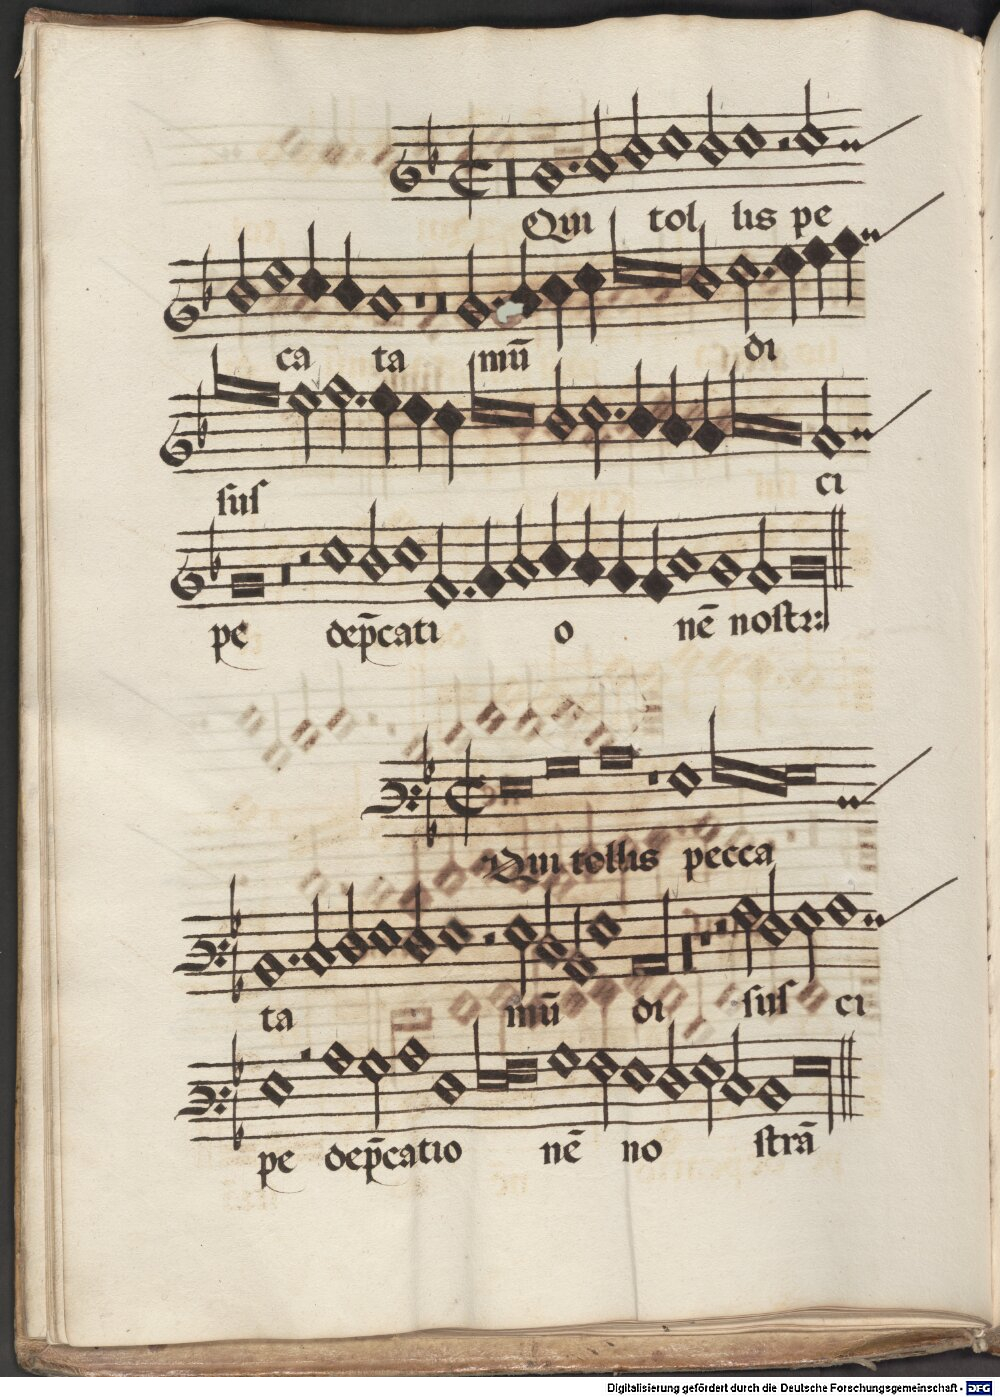 Qui tol lis pe
ca ta mū di
sus ci
pe dep̄cati o nē nostr
Qui tollis pecca
ta mū di sus ci
pe dep̄catio nē no strā
Digitalisierung gefördert durch die Deutsche Forschungsgemeinschaft - DFG